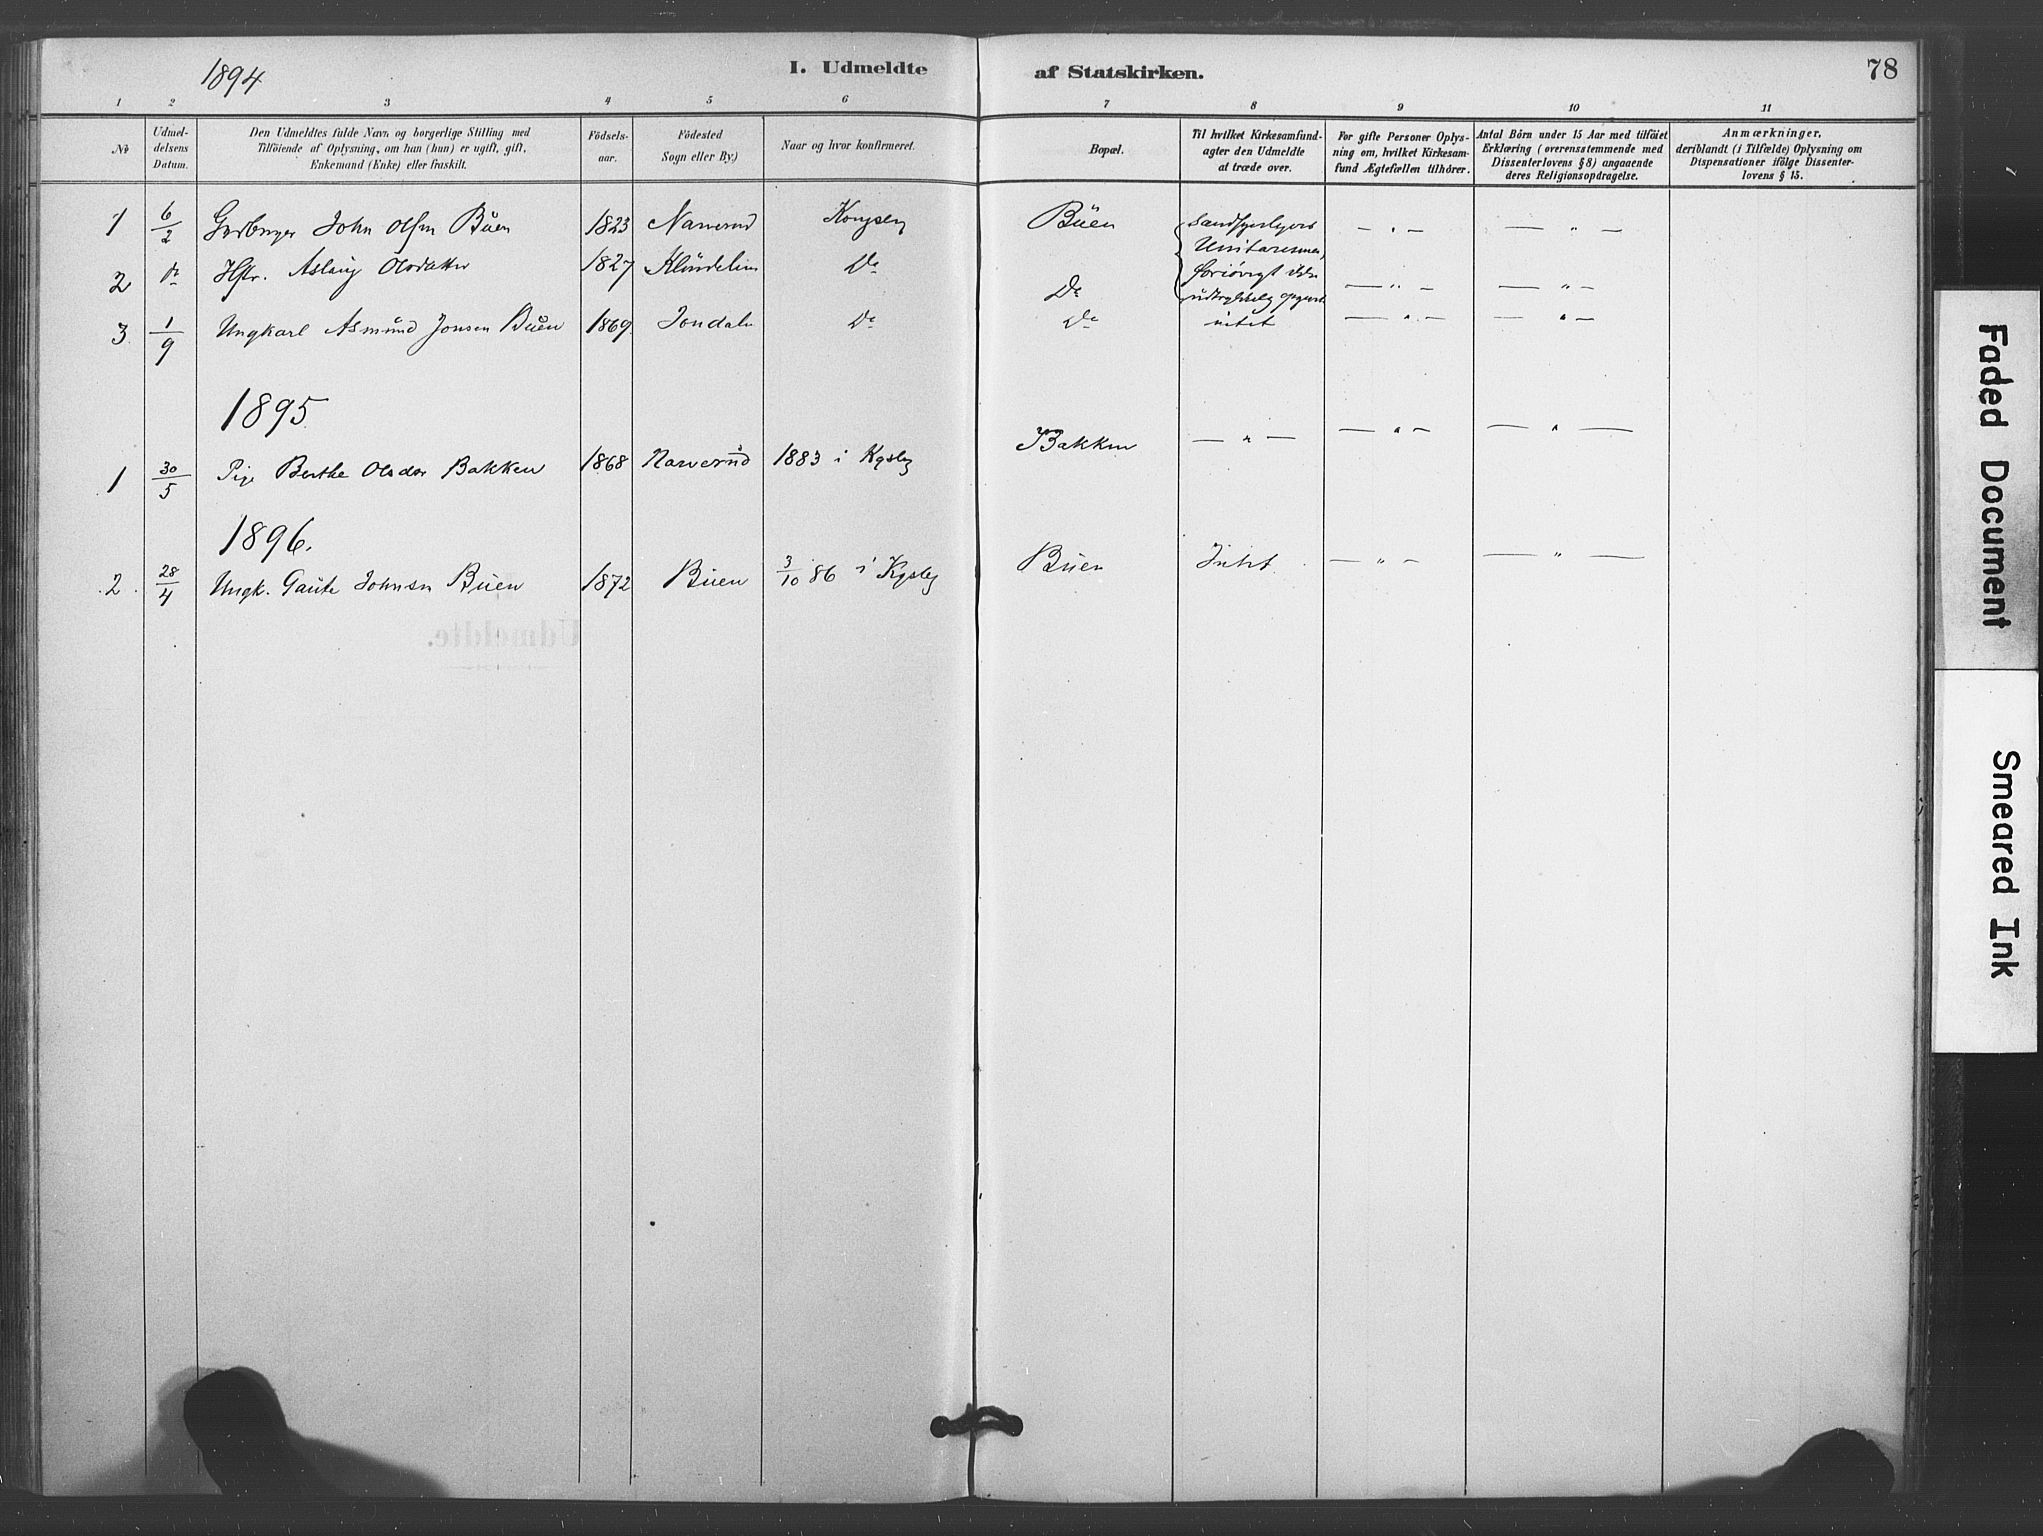 1894
I. Udmeldte af Statskirken.
78
1 2 3 4 5 6 7 8 9 10 11
No
Udmel-
delsens
Datum.
Den Udmeldtes fulde Navn og borgerlige Stilling med
Tilföiende af Oplysning, om han (hun) er ugift, gift,
Enkemand (Enke) eller fraskilt.
Födsels-
aar.
Födested
Sogn eller By.)
Naar og hvor konfirmeret.
Bopæl.
Til hvilket Kirkesamfund-
agter den Udmeldte
at træde over.
For gifte Personer Oplys-
ning om, hvilket Kirkesam-
fund Ægtefællen tilhörer.
Antal Börn under 15 Aar med tilföiet
Erklæring (overensstemmende med
Dissenterlovens § 8) angaaende
deres Religionsopdragelse.
Anmærkninger,
deriblandt (i Tilfælde) Oplysning om
Dispensationer ifölge Dissenter-
lovens § 15.
1 6/2 John Olsen Büen 1823 Kongsbg Büen — " —  — " —
2 do Hstr. Aslaug Olsdatter 1827 Do Do — " —  — " —
3 1/9 Ungkarl Asmund Jonsen Buen 1869 Jondalen Do Do intet — " —  — " —
1895
1 30/5 Pige Berthe Olsdat Bakken 1868 Narverud 1883 i Kgsbg Bakken — " —  — " —  — " —
1896.
2. 28/4 Ungk. Gaute Johnsn Buen 1872 Buen 3/10 86 i Kgsbg Buen Intet. — " —  — " —
Udmeldte.
Faded Document
Smeared Ink